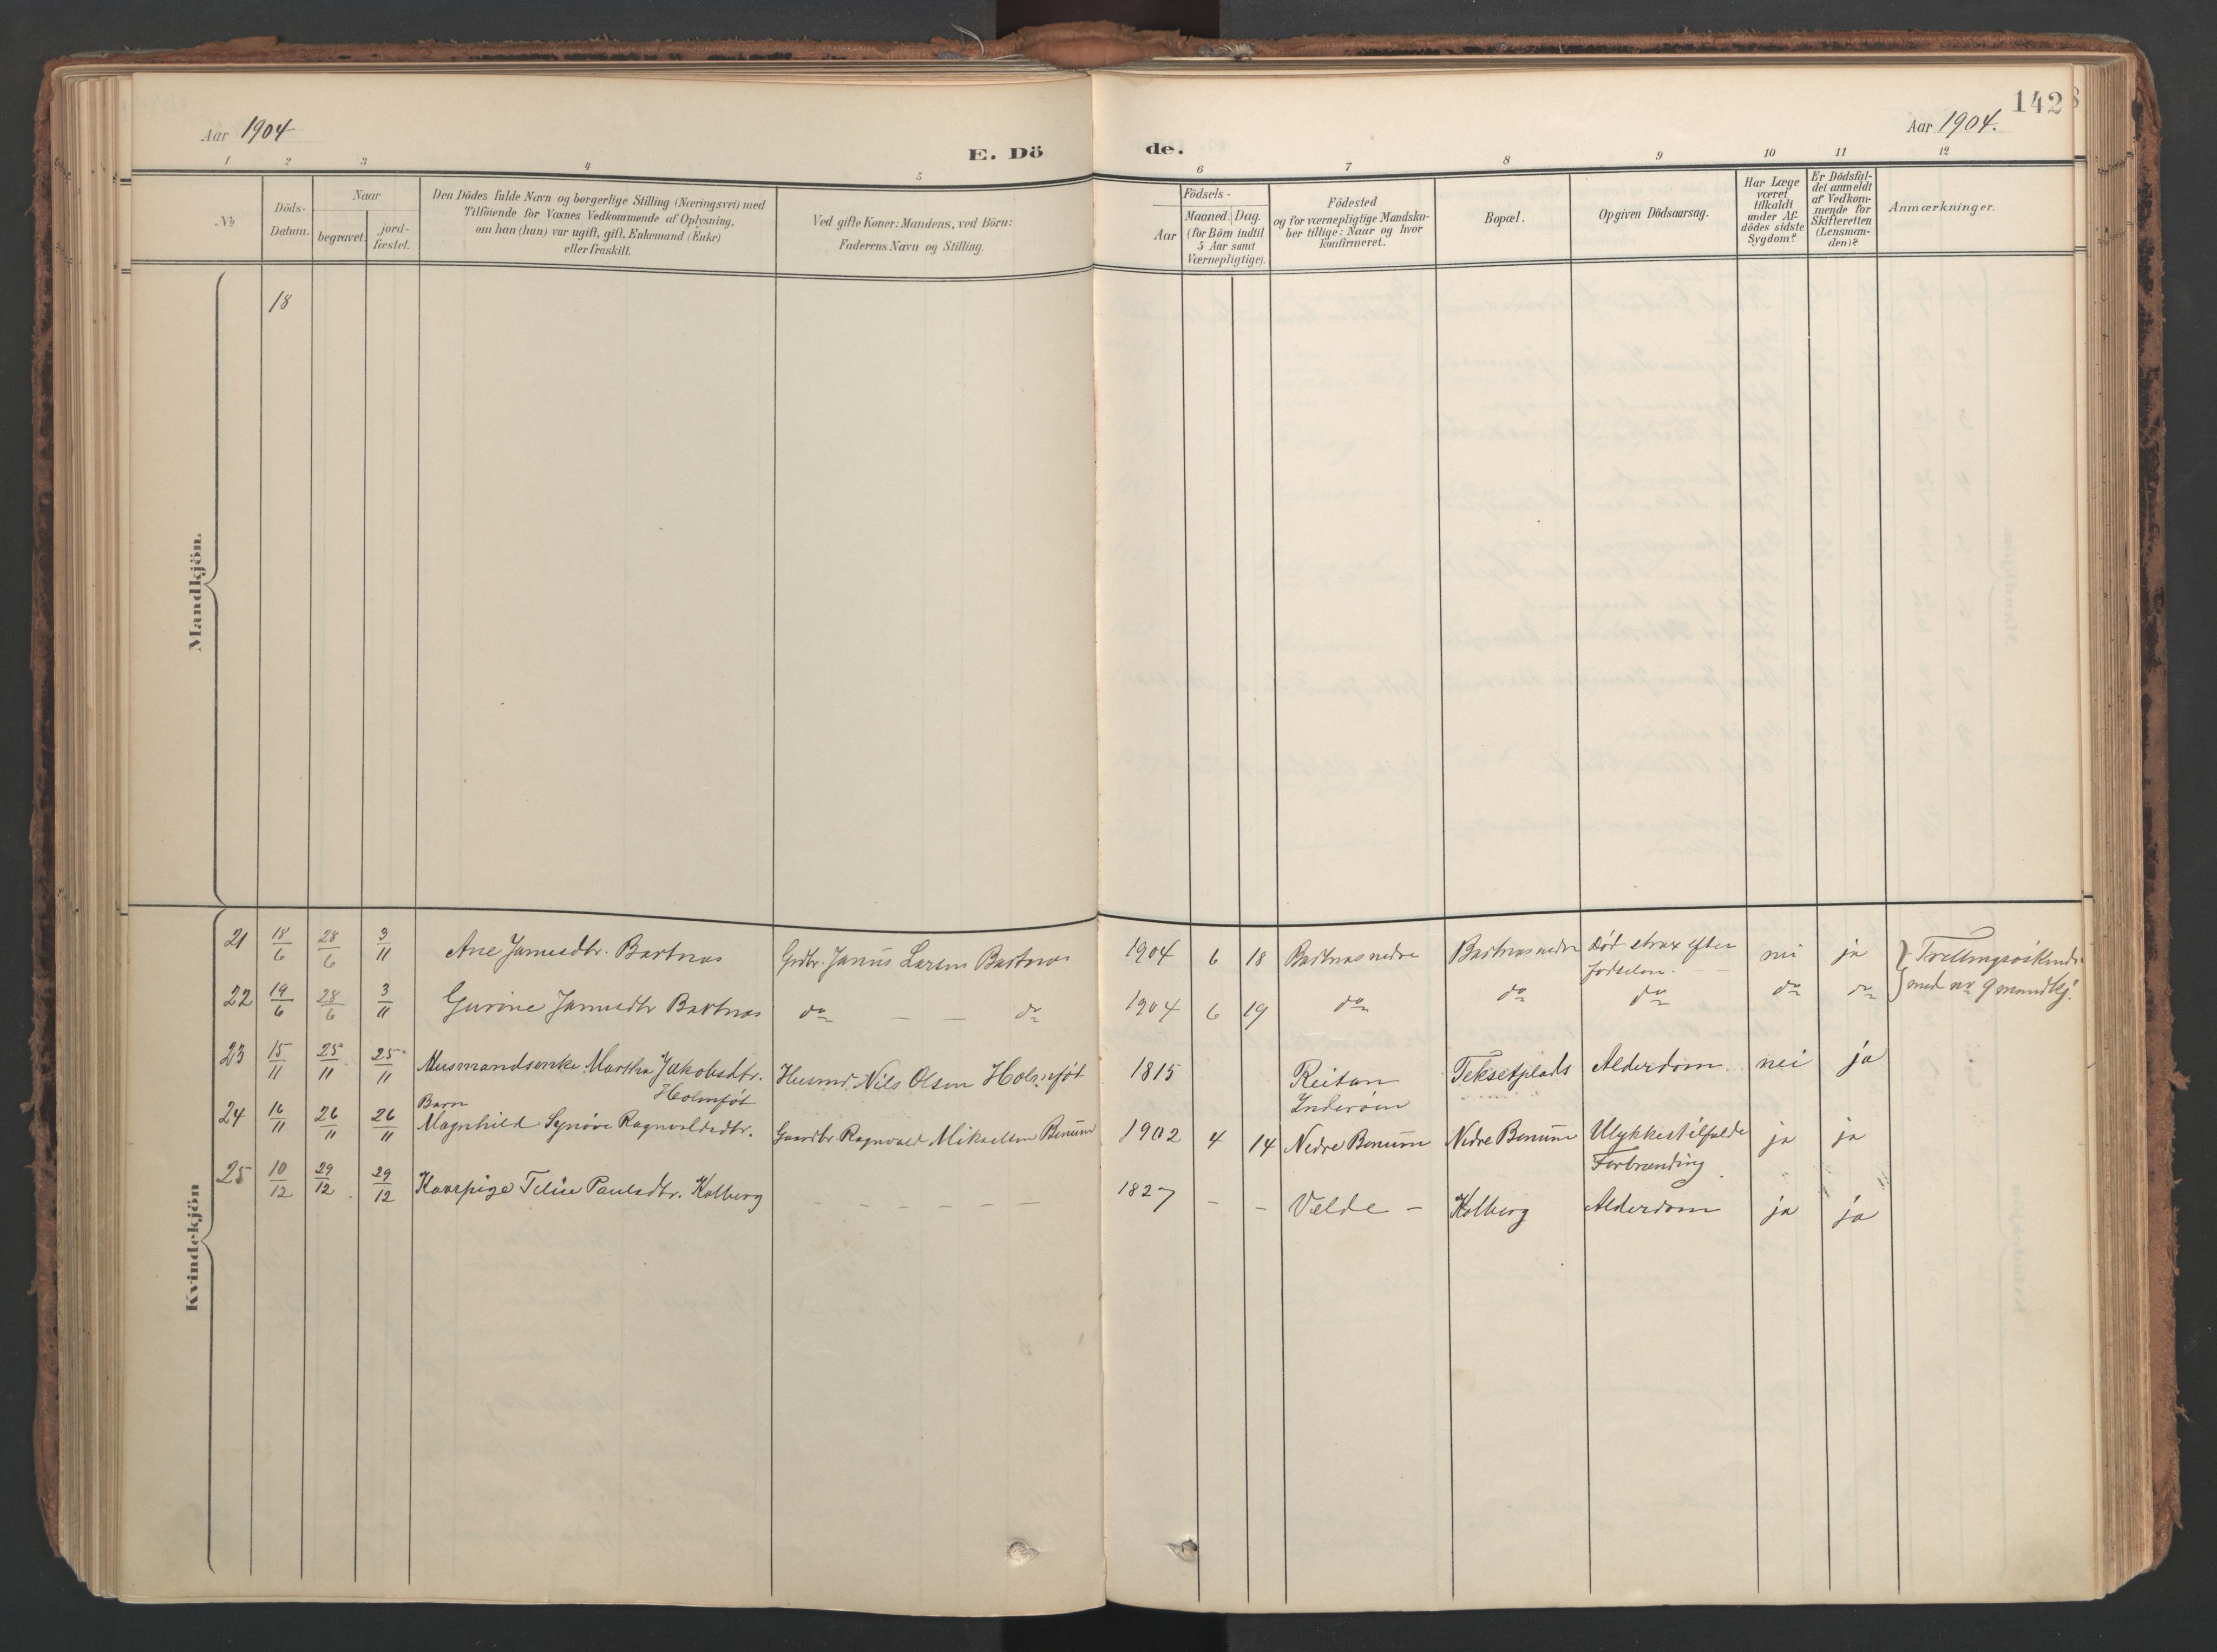 142
Aar 1904
E. Dö
de.
Aar 1904.
1 2 3 4 5 6 7 8 9 10 11 12
No
Döds-
Datum.
Naar
begravet.
jord-
fæstet.
Den Dödes fulde Navn og borgerlige Stilling (Næringsvei) med
Tilföiende for Voxnes Vedkommende af Oplysning,
om han (hun) var ugift, gift, Enkemand (Enke)
eller fraskilt.
Ved gifte Koner: Mandens, ved Börn:
Faderens Navn og Stilling.
Födsels-
Aar
Maaned. Dag.
(for Börn indtil
5 Aar samt
Værnepligtige).
Födested
og for værnepligtige Mandska-
ber tillige: Naar og hvor
konfirmeret.
Bopæl.
Opgiven Dödsaarsag.
Har Læge
været
tilkaldt
under Af-
dödes sidste
Sygdom?
Er Dödsfal-
det anmeldt
af Vedkom-
mende for
Skifteretten
(Lensman-
den)?
Anmærkninger.
Mandkjön.
18
Kvindekjön
21 18/6 28/6 3/11 Ane Janusdtr. Bartnes Grdbr. Janus Larsen Bartnes 1904 6 18 Bartnes nedre Bartnes nedre Død strax efter nei ja Trillingsøskende
fødselen.
med nr 9 mandkj.
22 19/6 28/6 3/11 Gurine Janusdtr Bartnes do — — do 1904 6 19 do do do do do
23 15/11 25/11 25/11 Husmandsenke Martha Jakobsdtr. Husmd. Nils Olsen Holmsføt 1815 Reitan Teksetplads Alderdom nei ja
Holmsføt
Inderøen
Barn
24 16/11 26/11 26/11 Magnhild Synøve Ragnvaldsdtr. Gaardbr Ragnvald Mikaelsen Benum 1902 4 14 Nedre Benum Nedre Benum Ulykkestilfælde ja ja
Forbrænding
25 10/12 29/12 29/12 Kaarpige Teline Paulsdtr. Kolberg — — — — — 1827 — — Velde — Kolberg Alderdom ja ja